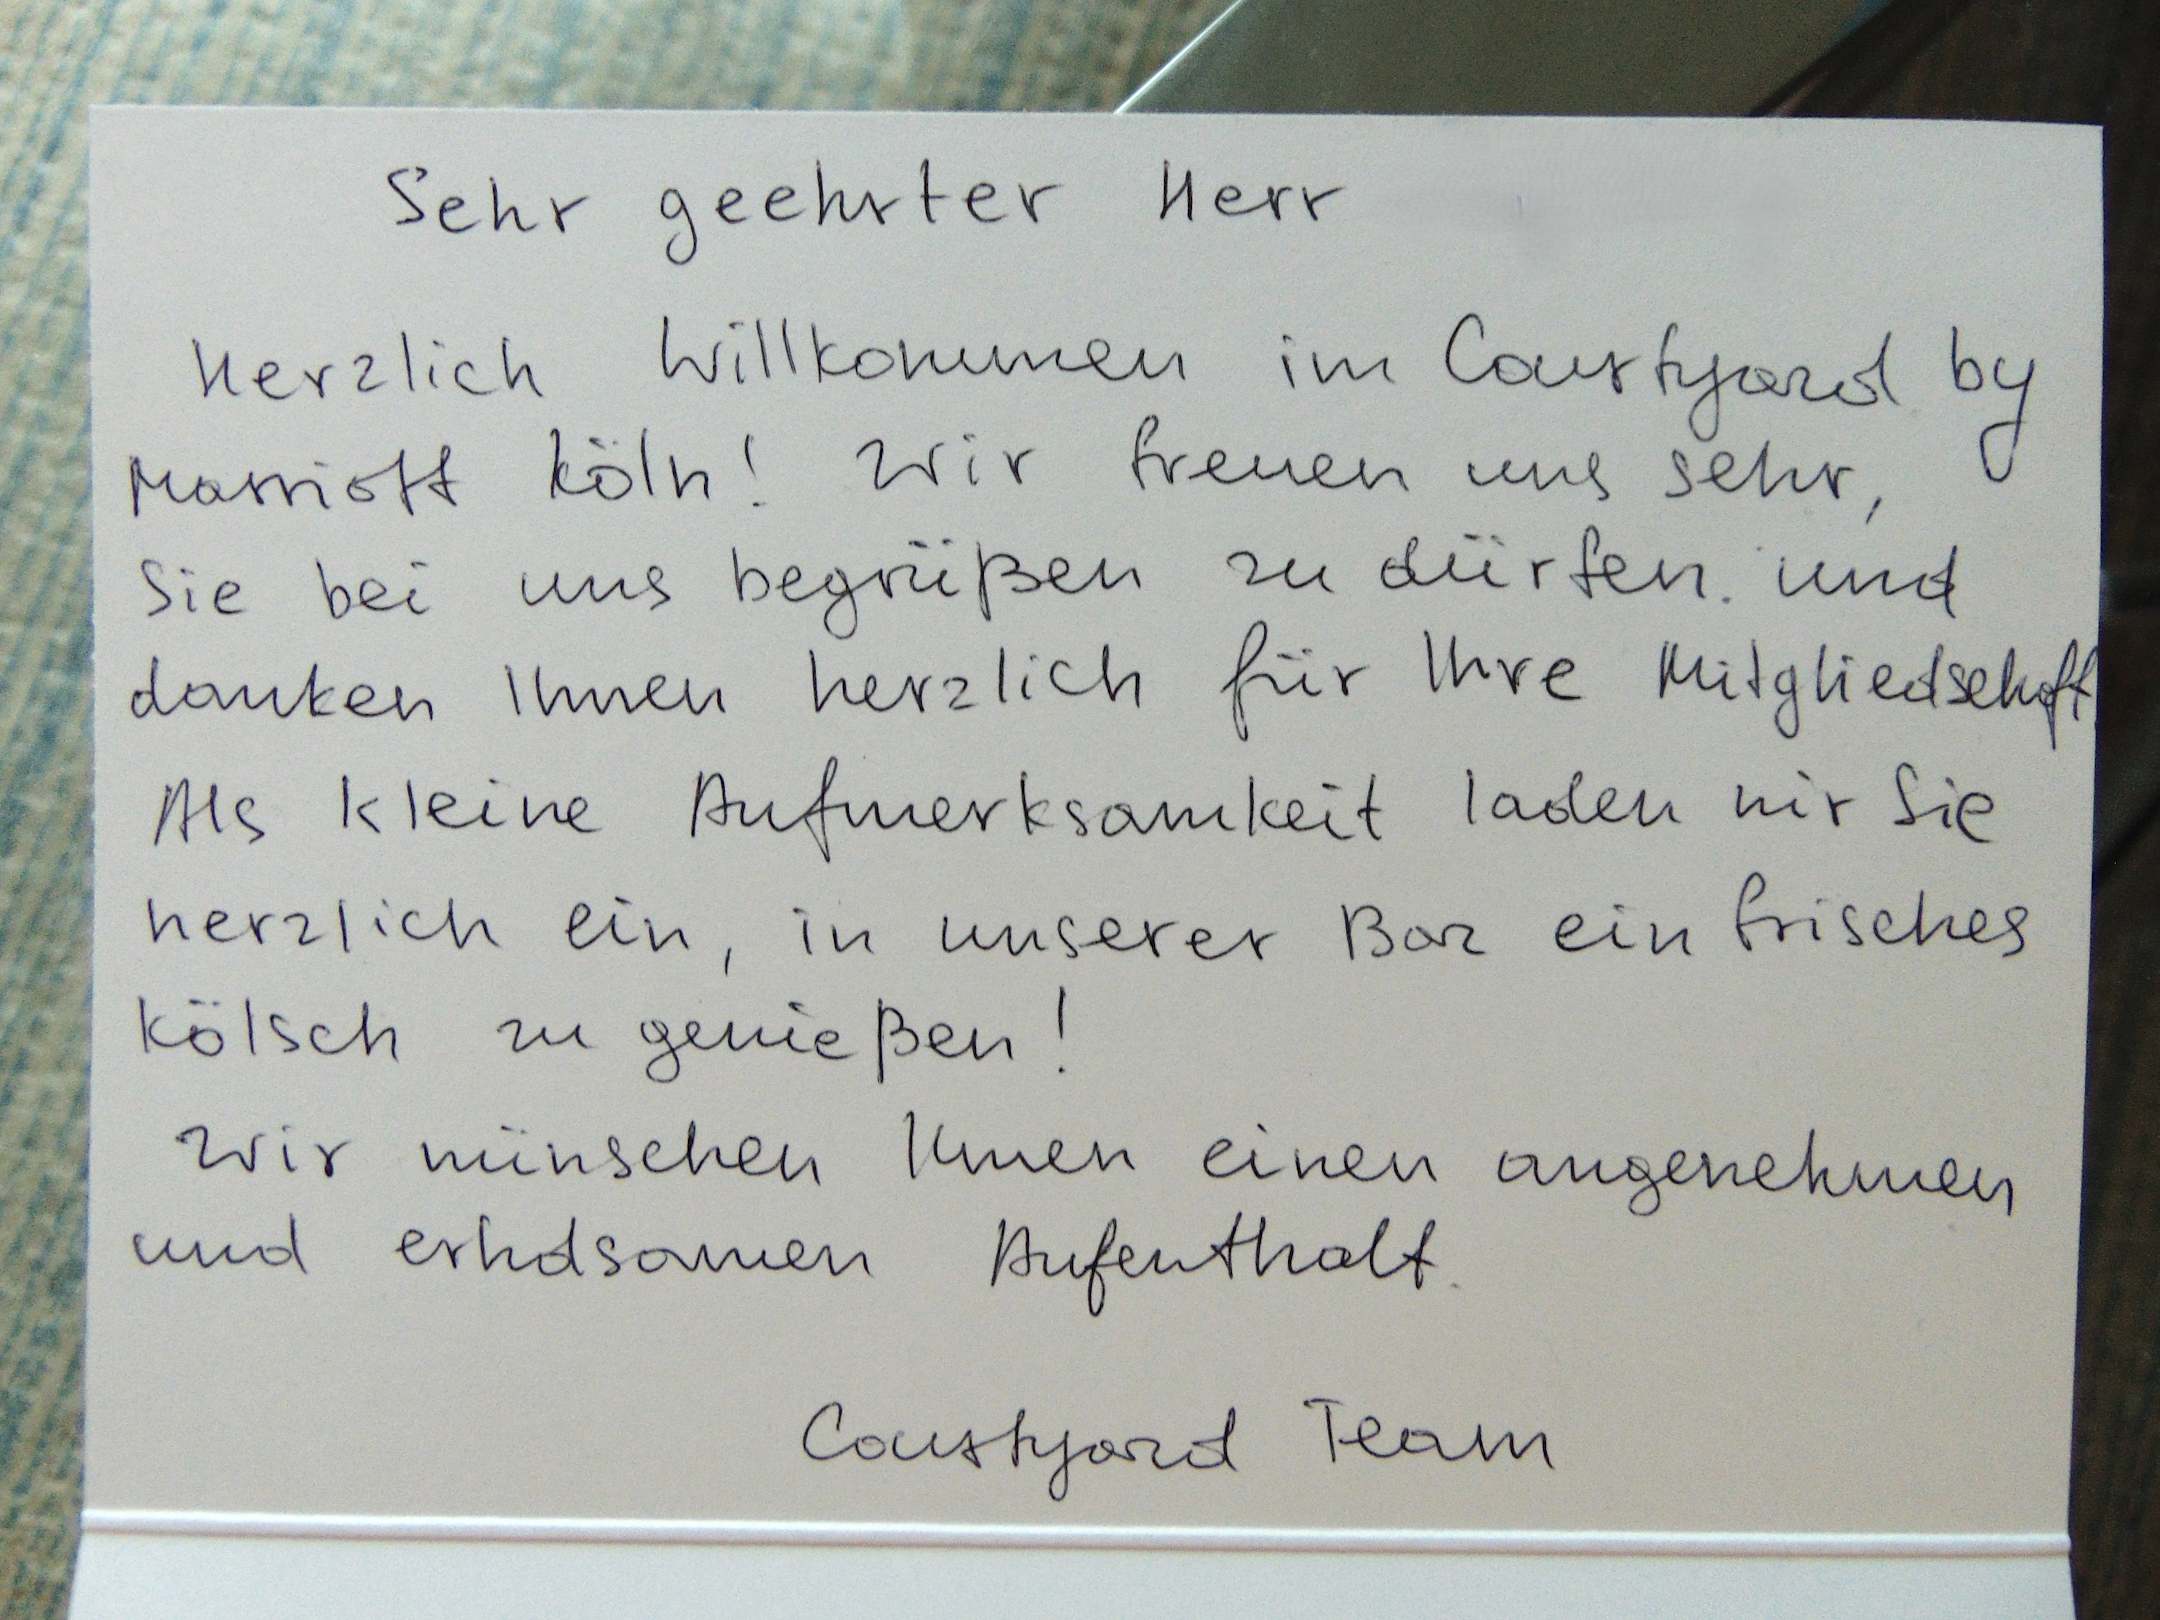 Sehr geehrter Herr
Herzlich Willkommen im Courtyard by
Marriott Köln! Wir freuen uns sehr,
Sie bei uns begrüßen zu dürfen. und
danken Ihnen herzlich für Ihre Mitgliedschaft
Als kleine Aufmerksamkeit laden wir Sie
herzlich ein, in unserer Bar ein frisches
Kölsch zu genießen!
Wir wünschen Ihnen einen angenehmen
und erholsamen Aufenthalt.
Courtyard Team